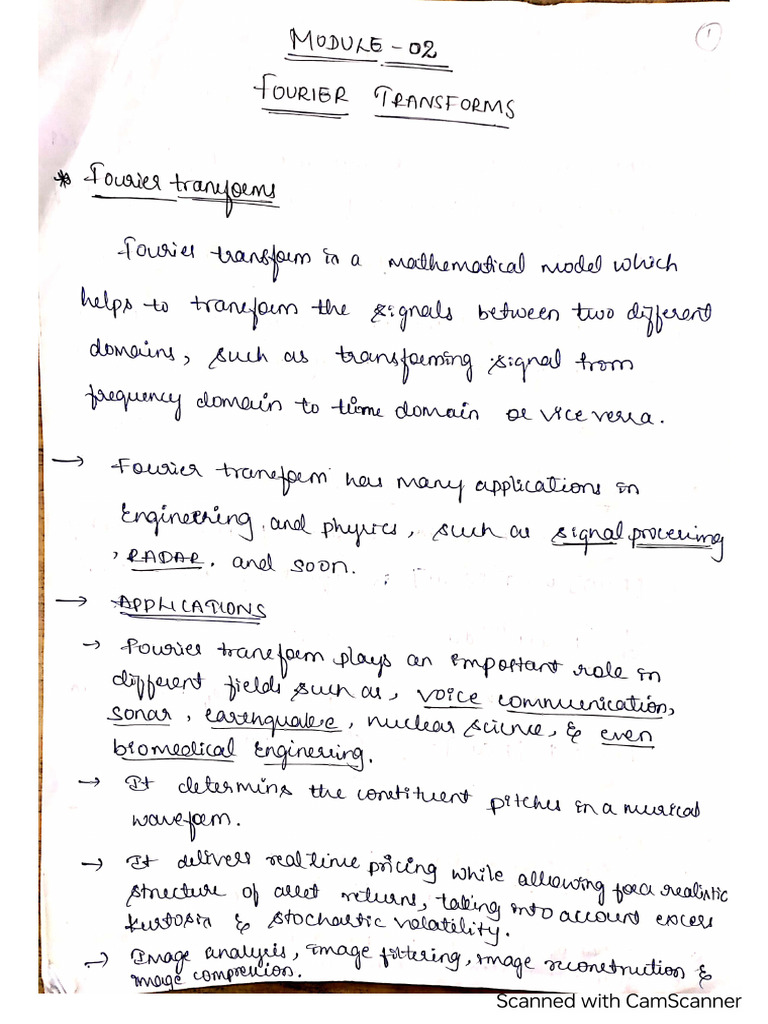 1
MODULE - 02
FOURIER TRANSFORMS
* Fourier transforms
Fourier transform is a mathematical model which
helps to transform the signals between two different
domains, such as transforming signal from
frequency domain to time domain or vice versa.
→ Fourier transform has many applications in
Engineering and physics, such as signal processing
, RADAR, and soon.
→ APPLICATIONS
→ Fourier transform plays an important role in
different fields such as, voice communication,
sonar, earthquake, nuclear science, & even
biomedical Engineering.
→ It determins the constituent pitches in a musical
waveform.
→ It delivers real time pricing while allowing for a realistic
structure of asset returns, taking into account excess
kurtosis & stochastic volatility.
→ Image analysis, image filtering, image reconstruction &
image compression.
Scanned with CamScanner